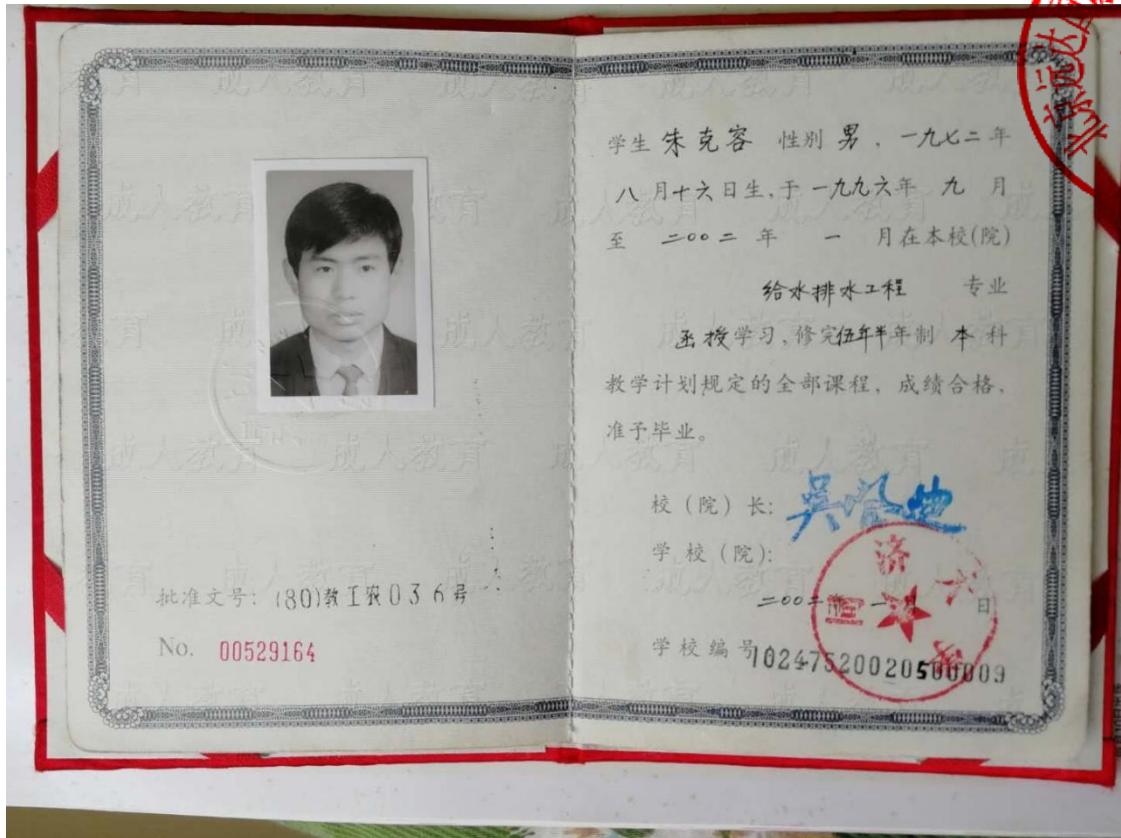 批准文号：(80)教工农036号
No. 00529164
学生 朱克容 性别 男，一九七二年
八月十六日生，于一九九六年 九 月
至 二〇〇二 年 一 月在本校(院)
给水排水工程 专业
函授学习，修完伍年半年制 本 科
教学计划规定的全部课程，成绩合格，
准予毕业。
校（院）长：
学 校（院）：
二〇〇二年一月 日
学校编号102475200205000009
成人教育